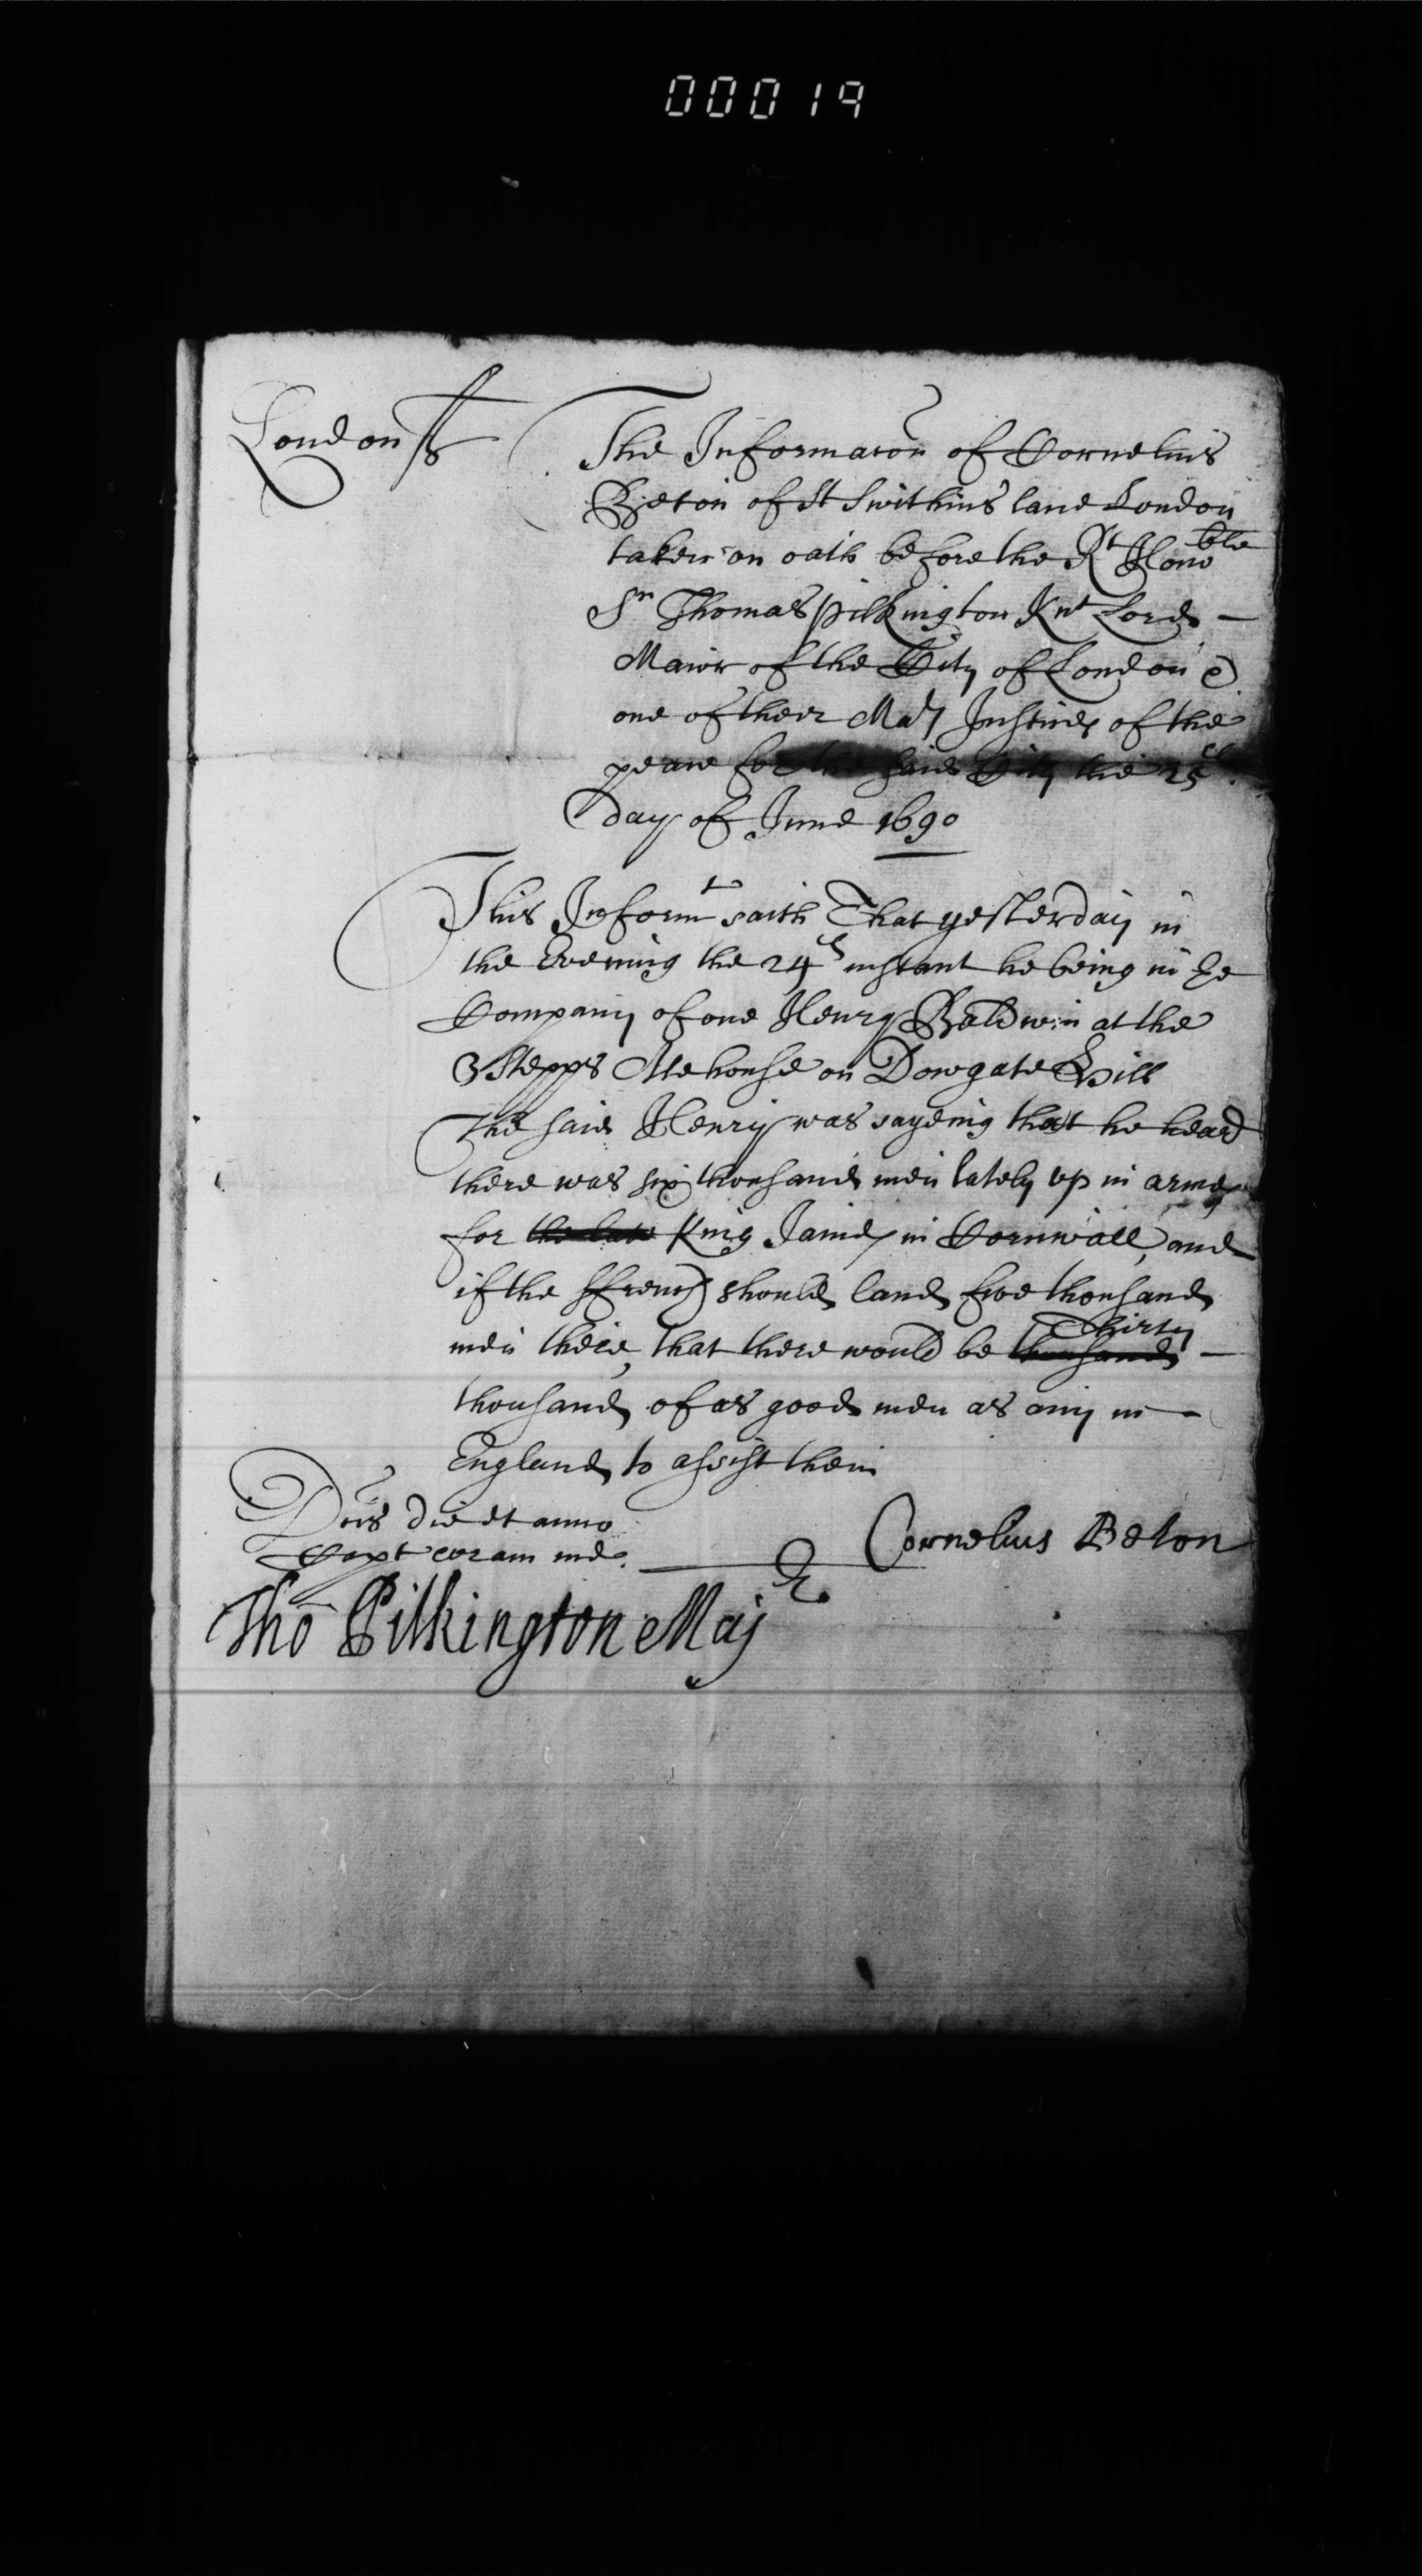 00019
London ss
The Informacon of Cornelius
Beton of St Swithins lane London
taken on oath before the Rt Honoble
Sr Thomas Pilkington Knt Lord
Maior of the City of London &
one of their Maty Justices of the
peace for the said City the 25th
day of June 1690
This Informt saith That yesterday in
the Evening the 24th instant he being in ye
Company of one Henry Baldwin at the
3 Stepps Alehouse on Dowgate Hill
The said Henry was sayeing that he heard
there was six thousand men lately up in armes
for the late King James in Cornwall, and
if the ffrench should land five thousand
men there, that there would be thousand Thirty
thousand of as good men as any in
England to assist them
Cornelius Beton
die et anno
Capt coram me
Tho Pilkington Maj